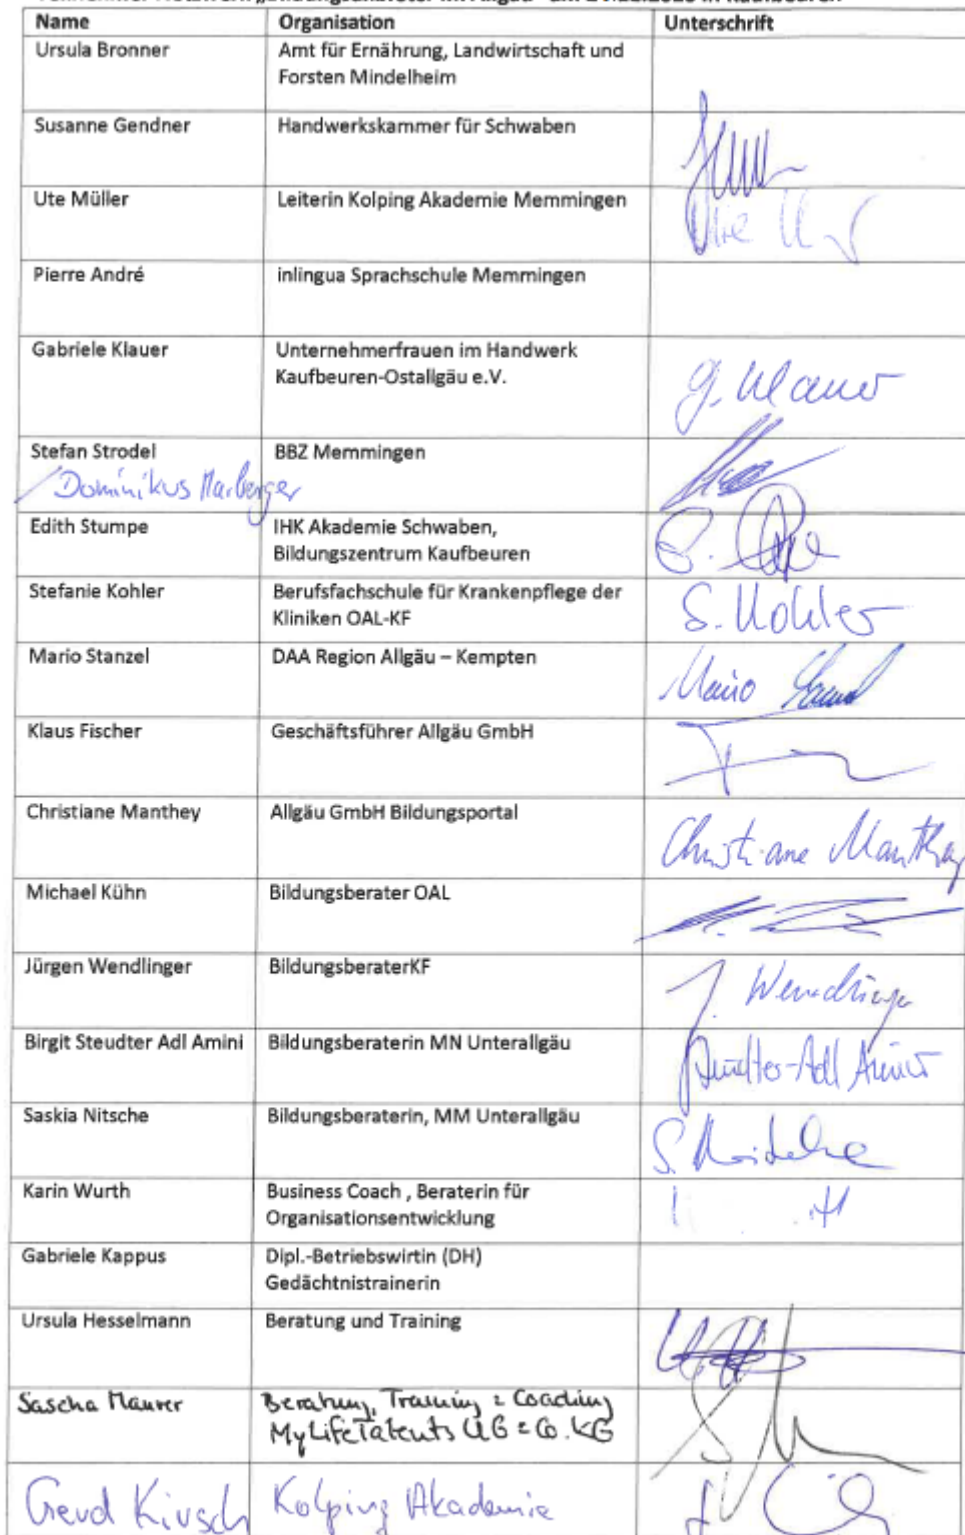 Name Organisation Unterschrift
Ursula Bronner Amt für Ernährung, Landwirtschaft und
Forsten Mindelheim
Susanne Gendner Handwerkskammer für Schwaben
Ute Müller Leiterin Kolping Akademie Memmingen
Pierre André inlingua Sprachschule Memmingen
Gabriele Klauer Unternehmerfrauen im Handwerk
Kaufbeuren-Ostallgäu e.V. G. Klauer
Stefan Strodel BBZ Memmingen
Dominikus Marberger
Edith Stumpe IHK Akademie Schwaben,
Bildungszentrum Kaufbeuren
Stefanie Kohler Berufsfachschule für Krankenpflege der
Kliniken OAL-KF S. Kohler
Mario Stanzel DAA Region Allgäu – Kempten Mario
Klaus Fischer Geschäftsführer Allgäu GmbH
Christiane Manthey Allgäu GmbH Bildungsportal Christiane Manthey
Michael Kühn Bildungsberater OAL
Jürgen Wendlinger BildungsberaterKF J. Wendlinger
Birgit Steudter Adl Amini Bildungsberaterin MN Unterallgäu Steudter-Adl Amini
Saskia Nitsche Bildungsberaterin, MM Unterallgäu S. Nitsche
Karin Wurth Business Coach , Beraterin für
Organisationsentwicklung
Gabriele Kappus Dipl.-Betriebswirtin (DH)
Gedächtnistrainerin
Ursula Hesselmann Beratung und Training
Sascha Maurer Beratung, Training & Coaching
MyLifeTalents UG & Co. KG
Gerd Kirsch Kolping Akademie